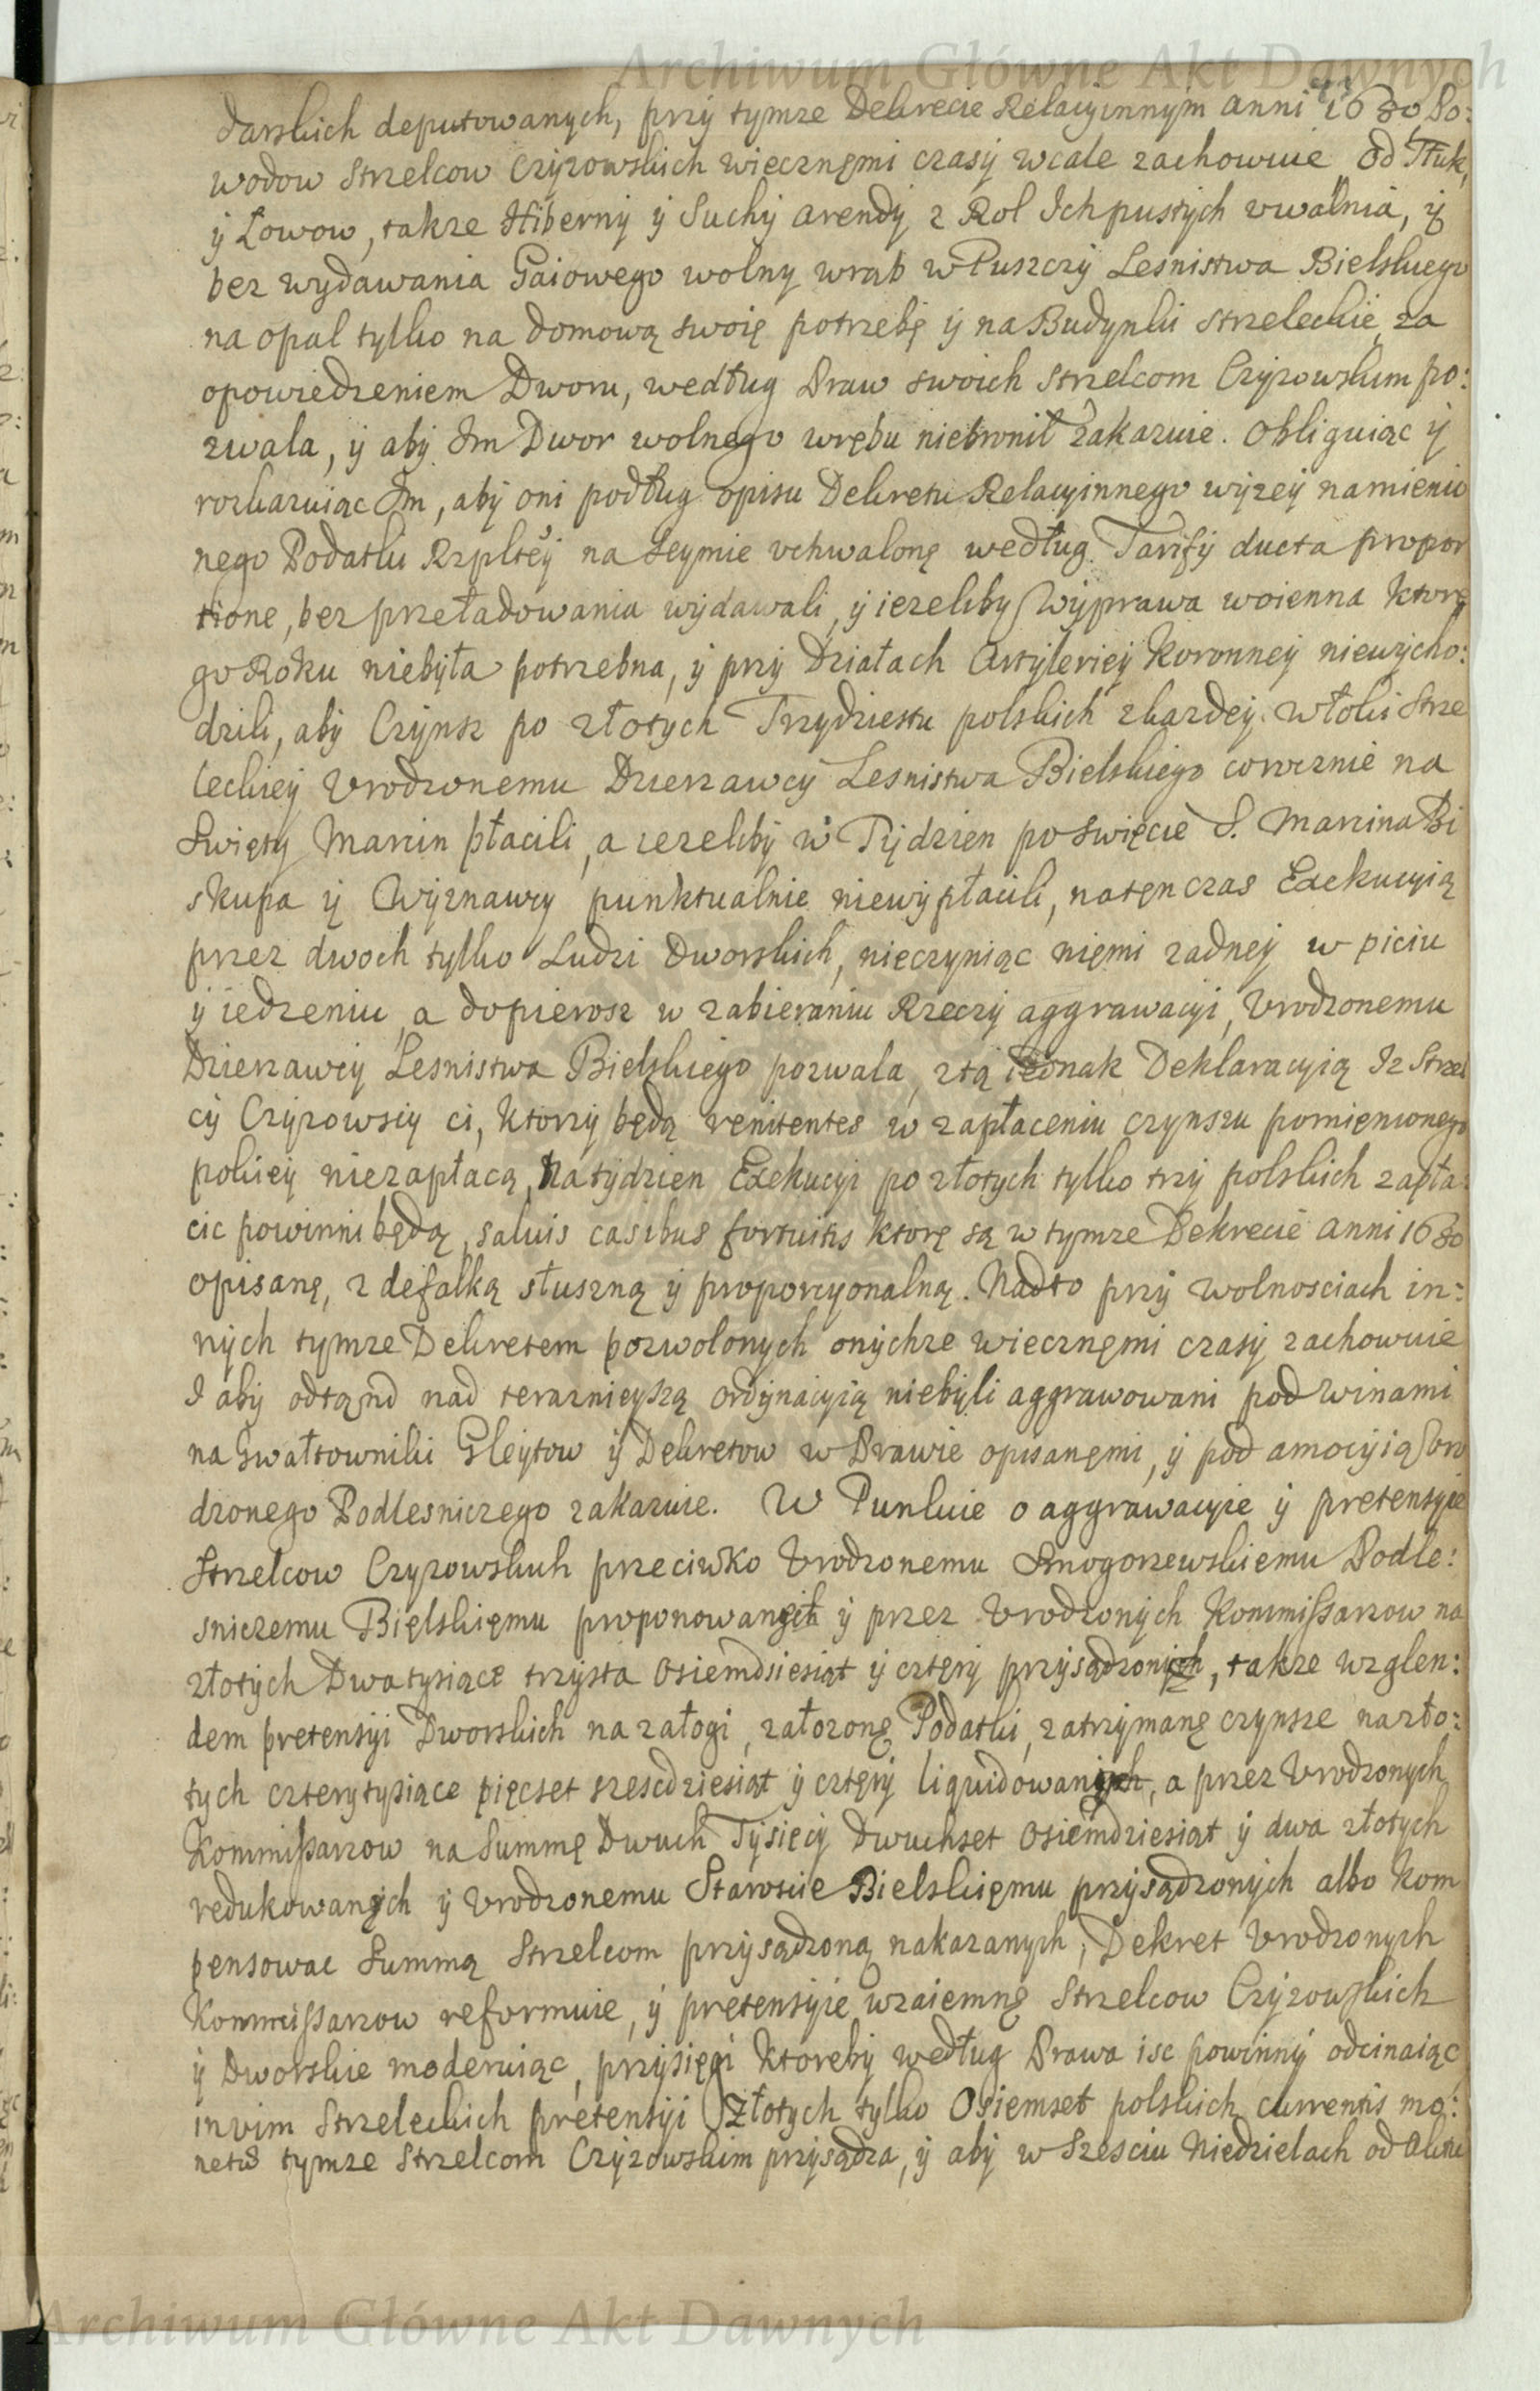 Archiwum Główne Akt Dawnych
darskich deputowanych, przy tymze Dekrecie Relacyinnym anni 1630 Po:
wodow Strzelcow Czyzowskich wiecznęmi czasy wcale zachowuie, od Tłuk,
ÿ Łowow, takze Hiberny ÿ Suchy arendy z Rol Ich pustych vwalnia, ÿ
bez wydawania Gaiowego wolny wrąb w Puszczy Lesnistwa Bielskiego
na opał tylko na domową swoię potrzebę ÿ na Budynki strzeleckie, za
opowiedzeniem Dworu, według Praw swoich Strzelcom Czyzowskim po:
zwala, ÿ aby Im Dwor wolnego wrębu niebronił zakazuie. Obliguiąc ÿ
rozkazuiąc Im, aby oni podług opisu Dekretu Relacyinnego wyzey namienio
nego Podatki Rzpltey na Seymie vchwalonę według Taryfy ducta propor
tione, bez przeładowania wydawali, ÿ iezeliby Wyprawa woienna ktorę
go Roku niebyła potrzebna, ÿ przy Działach Artyleryey Koronney niewycho:
dzili, aby Czynsz po złotych Trzydziestu polskich z kazdey włoki Strze
leckiey Vrodzonemu Dzierzawcy Lesnistwa Bielskiego corocznie na
Swięty Marcin płacili, a iezeliby w Tydzien po swięcie S. Marcina Bi
skupa ÿ Wyznawcy punktualnie niewypłacili, natęnczas Exekucyią
przez dwoch tylko Ludzi Dworskich, nieczyniąc nięmi zadney w piciu
ÿ iedzeniu, a dopierosz w zabieraniu Rzeczy aggrawacyi, Vrodzonemu
Dzierzawcy Lesnistwa Bielskiego pozwala, z tą iednak Deklaracyią Iz Strzel
cy Czyzowscy ci, ktorzy będą renitentes w zapłaceniu czynszu pomięnionego
pokiey niezapłacą, na tydzien Exekucyi po złotych tylko trzy polskich zapła:
cic powinni będą, salvis casibus fortuitis ktorę są w tymze Dekrecie anni 1630
opisanę, z defalką słuszną ÿ proporcyonalną. Nadto przy wolnosciach in:
nych tymze Dekretem pozwolonych onychze wiecznęmi czasy zachowuie
I aby odtąnd nad teraznieyszą ordynacyią niebyli aggrawowani pod winami
na Gwałtowniki Gleytow ÿ Dekretow w Prawie opisanęmi, ÿ pod amocyią Vro
dzonego Podlesniczego zakazuie. W Punkcie o aggrawacyie ÿ pretensyie
Strzelcow Czyzowskich przeciwko Vrodzonemu Gnogorzewskiemu Podle:
sniczemu Bielskięmu proponowanych ÿ przez Vrodzonych Kommissarzow na
złotych Dwa tysiące trzysta osiemdsiesiąt ÿ cztęry przysądzonych, takze wzglen:
dem pretensyi Dworskich na załogi, załozonę Podatki, zatrzymanę czynsze na zło:
tych cztery tysiące pięcset szescdziesiąt ÿ cztęry liquidowanych, a przez Vrodzonych
Kommissarzow na Summę Dwuch Tysięcy Dwuchset osiemdziesiąt ÿ dwa złotych
redukowanych ÿ Vrodzonemu Staroscie Bielskięmu przysądzonych albo kom
pensowac Summą Strzelcom przysądzoną nakazanych, Dekret Vrodzonych
Kommissarzow reformuie, ÿ pretensyie wzaiemnę Strzelcow Czyzowskich
ÿ Dworskie moderuiąc, przysięgi ktoreby według Prawa isc powinny odcinaiąc
in vim Strzeleckich pretensyi Złotych tylko Osiemset polskich currentis mo:
netæ tymze Strzelcom Czyzowskim przysądza, ÿ aby w Szesciu Niedzielach od Aktu
Archiwum Główne Akt Dawnych